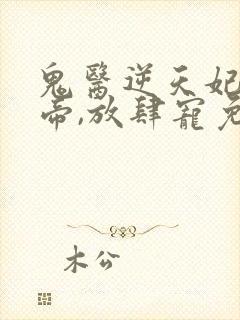 鬼醫逆天妃
帝,放肆寵
木公